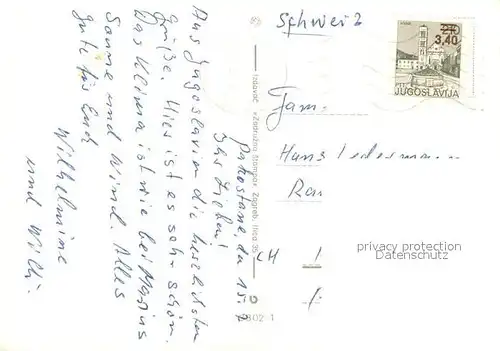 Pakoštane, du 15.
Ihr Lieben!
Aus Jugoslavien die herzlichsten
Grüße. Hier ist es sehr schön.
Das Klima ist wie bei
Sonne und Wind. Alles
Gute für Euch
Wilhelmine
und Willi.
Izdavač: »Zadružna štampa«, Zagreb, Ilica 35
Schweiz
210
3,40
JUGOSLAVIJA
Fam.
Hans
CH
privacy protection
Datenschutz